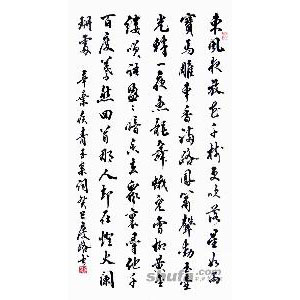 東風夜放花千樹更吹落星如雨
寶馬雕車香滿路鳳簫聲動玉壺
光轉一夜魚龍舞蛾兒雪柳黃金
縷笑語盈盈暗香去眾裏尋他千
百度驀然回首那人卻在燈火闌
珊處 辛棄疾青玉案詞癸巳
shufa.com